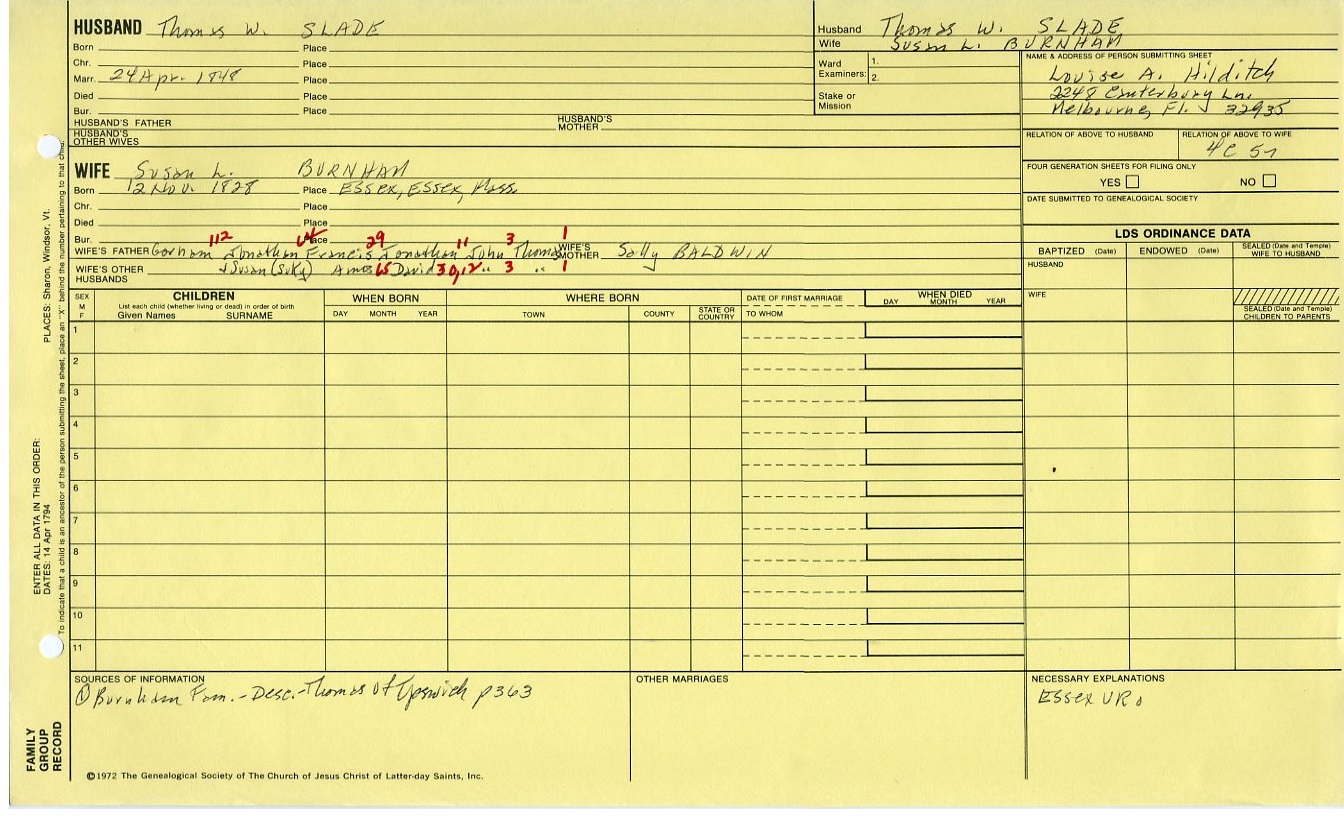 HUSBAND Thomas W. SLADE
Born Place
Chr. Place
Marr. 24 Apr. 1848 Place
Died Place
Bur. Place
HUSBAND'S FATHER HUSBAND'S MOTHER
HUSBAND'S OTHER WIVES
Husband Thomas W. SLADE
Wife Susan L. BURNHAM
Ward Examiners: 1.
2.
Stake or Mission
NAME & ADDRESS OF PERSON SUBMITTING SHEET
Louise A. Hilditch
2248 Canterbury Ln.
Melbourne, Fl. 32935
RELATION OF ABOVE TO HUSBAND RELATION OF ABOVE TO WIFE
4C 5r
FOUR GENERATION SHEETS FOR FILING ONLY
YES NO
DATE SUBMITTED TO GENEALOGICAL SOCIETY
WIFE Susan L. BURNHAM
Born 12 Nov. 1828 Place Essex, Essex, Mass.
Chr. Place
Died Place
Bur. Place
112 29 11 3 1
WIFE'S FATHER Gorham Jonathan Francis Jonathan John Thomas WIFE'S MOTHER Sally BALDWIN
WIFE'S OTHER HUSBANDS + Susan (Suky) Amos 65 David 30, 12 " 3 " 1
LDS ORDINANCE DATA
BAPTIZED (Date) ENDOWED (Date) SEALED (Date and Temple) WIFE TO HUSBAND
HUSBAND
WIFE
SEALED (Date and Temple) CHILDREN TO PARENTS
SEX M F
CHILDREN
List each child (whether living or dead) in order of birth
Given Names SURNAME
WHEN BORN
DAY MONTH YEAR
WHERE BORN
TOWN COUNTY STATE OR COUNTRY
DATE OF FIRST MARRIAGE
TO WHOM
WHEN DIED
DAY MONTH YEAR
1
2
3
4
5
6
7
8
9
10
11
SOURCES OF INFORMATION
① Burnham Fam. - Desc. - Thomas of Ipswich p363
OTHER MARRIAGES
NECESSARY EXPLANATIONS
Essex VR.
©1972 The Genealogical Society of The Church of Jesus Christ of Latter-day Saints, Inc.
FAMILY GROUP RECORD
ENTER ALL DATA IN THIS ORDER:
DATES: 14 Apr 1794
PLACES: Sharon, Windsor, Vt.
To indicate that a child is an ancestor of the person submitting the sheet, place an "X" behind the number pertaining to that child.